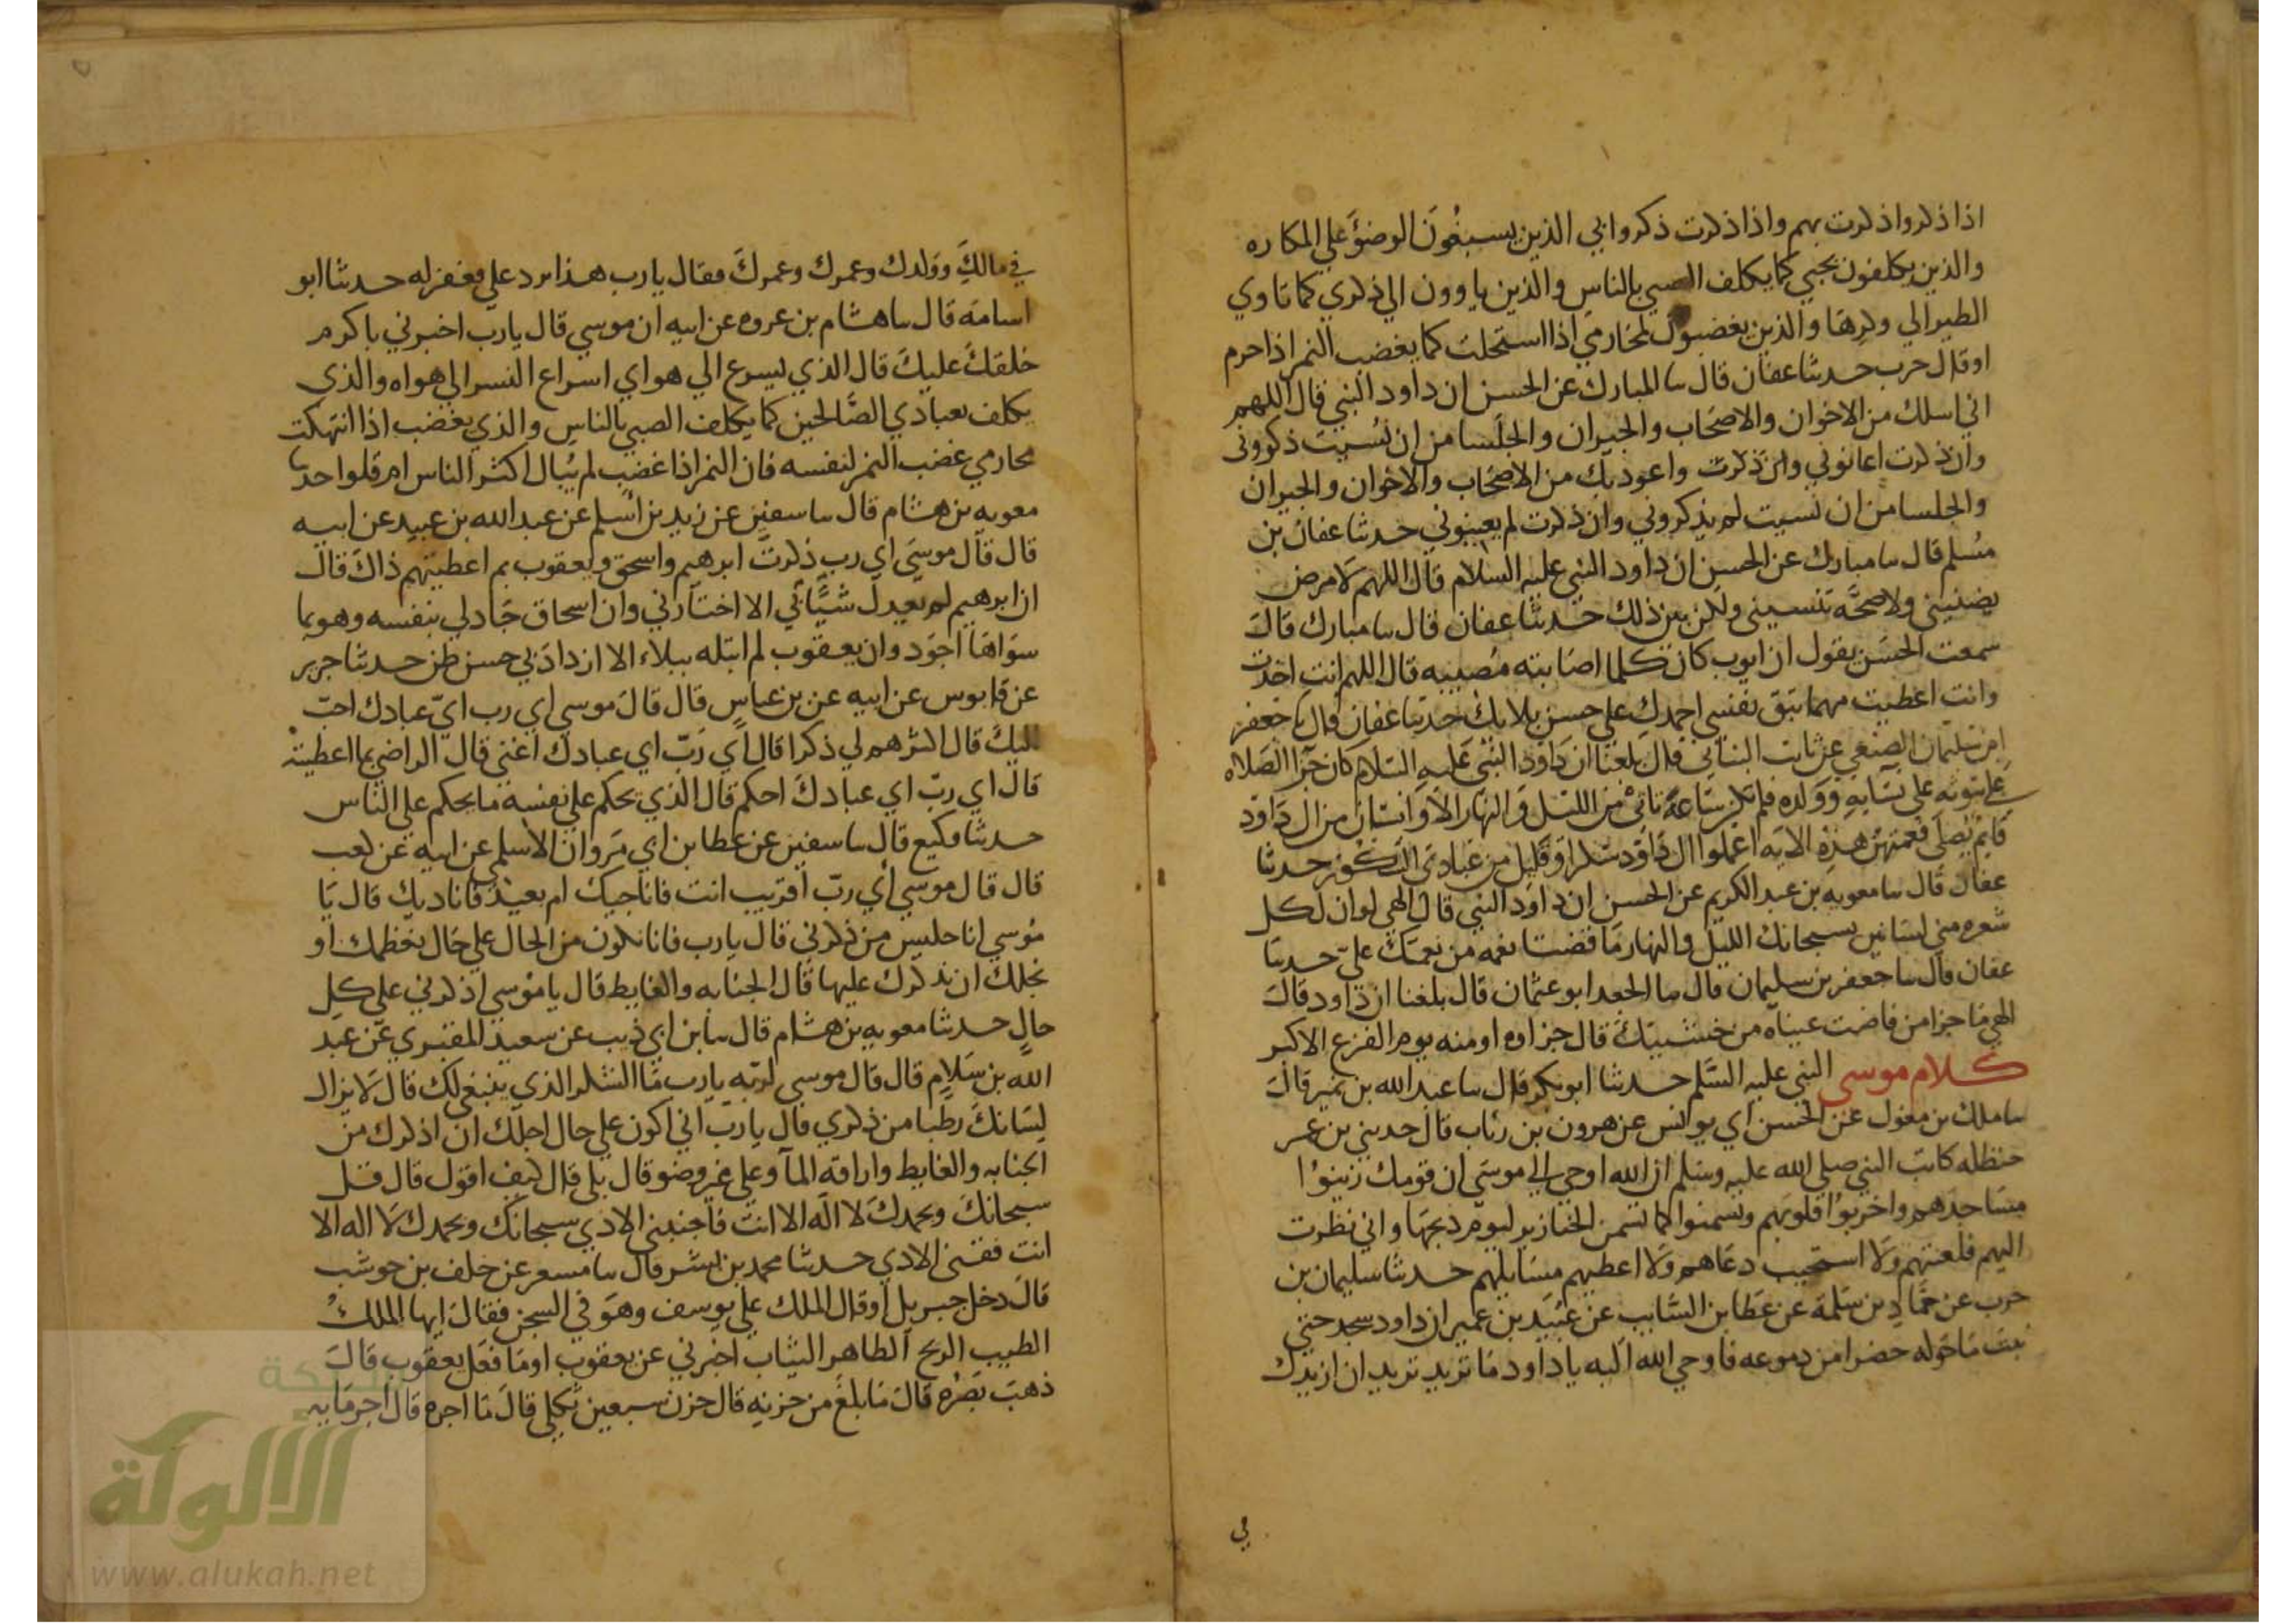 اذا ذكروا ذكرت بهم واذا ذكرت ذكروا بي الذين يسبغون الوضوء علي المكاره
والذين يكلفون بحبي كما يكلف الصبي بالناس والذين ياوون الي ذكري كما تاوي
الطير الي وكرها والذين يغضبون لمحارمي اذا استحلت كما يغضب النمر اذا حرم
او قال حرب حدثنا عفان قال سا المبارك عن الحسن ان داود النبي قال اللهم
اني اسلك من الاخوان والاصحاب والجيران والجلسا من ان نسيت ذكروني
وان ذكرت اعانوني وان ذكرت واعوذ بك من الاصحاب والاخوان والجيران
والجلسا من ان نسيت لم يذكروني وان ذكرت لم يعينوني حدثنا عفان بن
مسلم قال سا مبارك عن الحسن ان داود النبي عليه السلام قال اللهم لا مرض
يضنيني ولا صحة تنسيني ولكن بين ذلك حدثنا عفان قال سا مبارك قال
سمعت الحسن يقول ان ايوب كان كلما اصابته مصيبه قال اللهم انت اخذت
وانت اعطيت مهما تبق نفسي احمدك علي حسن بلايك حدثنا عفان قال سا جعفر
بن سليمان الضبعي عن ثابت البناني قال بلغنا ان داود النبي عليه السلام كان جزا الصلاه
في بيوته علي نسايه وولده فلم تكن ساعة تاتي من الليل والنهار الا وانسان من ال داود
قايم يصلي فعمتهن هذه الايه اعملوا ال داود شكرا وقليل من عبادي الشكور حدثنا
عفان قال سا معويه بن عبد الكريم عن الحسن ان داود النبي قال الهي لو ان لكل
شعره مني لسانين يسبحانك الليل والنهار ما قضتا نعمه من نعمك علي حدثنا
عفان قال سا جعفر بن سليمان قال سا الجعد ابو عثمان قال بلغنا ان داود قال
الهي ما جزا من فاضت عيناه من خشيتك قال جزاوه اومنه يوم الفزع الاكبر
كلام موسى النبي عليه السلم حدثنا ابو بكر قال سا عبد الله بن نمير قال
سا ملك بن مغول عن الحسن اي يوانس عن هرون بن رئاب قال حدثني بن عم
حنظله كاتب النبي صلي الله عليه وسلم ان الله اوحي الي موسي ان قومك زينوا
مساجدهم واخربوا قلوبهم وتسمنوا كما تسمن الخنازير ليوم ذبحها واني نظرت
اليهم فلعنتهم ولا استجيب دعاهم ولا اعطيهم مسايلهم حدثنا سليمان بن
حرب عن حماد بن سلمة عن عطا بن السايب عن عبيد بن عمير ان داود سجد حتي
نبت ما حوله حضرا من دموعه فاوحي الله اليه يا داود ما تريد تريد ان ازيدك
في
في مالك وولدك وعمرك وعمرك فقال يا رب هذا ترد علي فغفر له حدثنا ابو
اسامة قال سا هشام بن عروه عن ابيه ان موسي قال يا رب اخبرني باكرم
خلقك عليك قال الذي يسرع الي هواي اسراع النسر الي هواه والذي
يكلف بعبادي الصالحين كما يكلف الصبي بالناس والذي يغضب اذا انتهكت
محارمي غضب النمر لنفسه فان النمر اذا غضب لم يبال اكثر الناس ام قلوا حدثنا
معويه بن هشام قال سا سفين عن زيد بن اسلم عن عبد الله بن عبيد عن ابيه
قال قال موسي اي رب ذكرت ابرهيم واسحق ويعقوب بم اعطيتهم ذاك قال
ان ابرهيم لم يعدل شيئا بي الا اختارني وان اسحاق جاد لي بنفسه وهو بما
سواها اجود وان يعقوب لم ابتله ببلاء الا ازداد بي حسن ظن حدثنا جرير
عن قابوس عن ابيه عن بن عباس قال قال موسي اي رب اي عبادك احب
اليك قال اكثرهم لي ذكرا قال اي رب اي عبادك اغني قال الراضي بما اعطيته
قال اي رب اي عبادك احكم قال الذي يحكم علي نفسه ما يحكم علي الناس
حدثنا وكيع قال سا سفين عن عطا بن ابي مروان الاسلمي عن ابيه عن كعب
قال قال موسي اي رب اقريب انت فاناجيك ام بعيد فاناديك قال يا
موسي انا جليس من ذكرني قال يا رب فانا نكون من الحال علي حال نعظمك او
نجلك ان نذكرك عليها قال الجنابه والغايط قال يا موسي اذكرني علي كل
حال حدثنا معويه بن هشام قال سا بن ابي ذيب عن سعيد المقبري عن عبد
الله بن سلام قال قال موسي لربه يا رب ما الشكر الذي ينبغي لك قال لا يزال
لسانك رطبا من ذكري قال يا رب اني اكون علي حال اجلك ان اذكرك من
الجنابه والغايط واراقه الماء وعلي غير وضو قال بلي قال كيف اقول قال قل
سبحانك وبحمدك لا اله الا انت فاجنبني الاذي سبحانك وبحمدك لا اله الا
انت فقني الاذي حدثنا محمد بن بشر قال سا مسعر عن خلف بن حوشب
قال دخل جبريل او قال الملك علي يوسف وهو في السجن فقال ايها الملك
الطيب الريح الطاهر الثياب اخبرني عن يعقوب او ما فعل يعقوب قال
ذهب بصره قال ما بلغ من حزنه قال حزن سبعين ثكلي قال ما اجره قال اجر مايه
شبكة
الألوكة
www.alukah.net